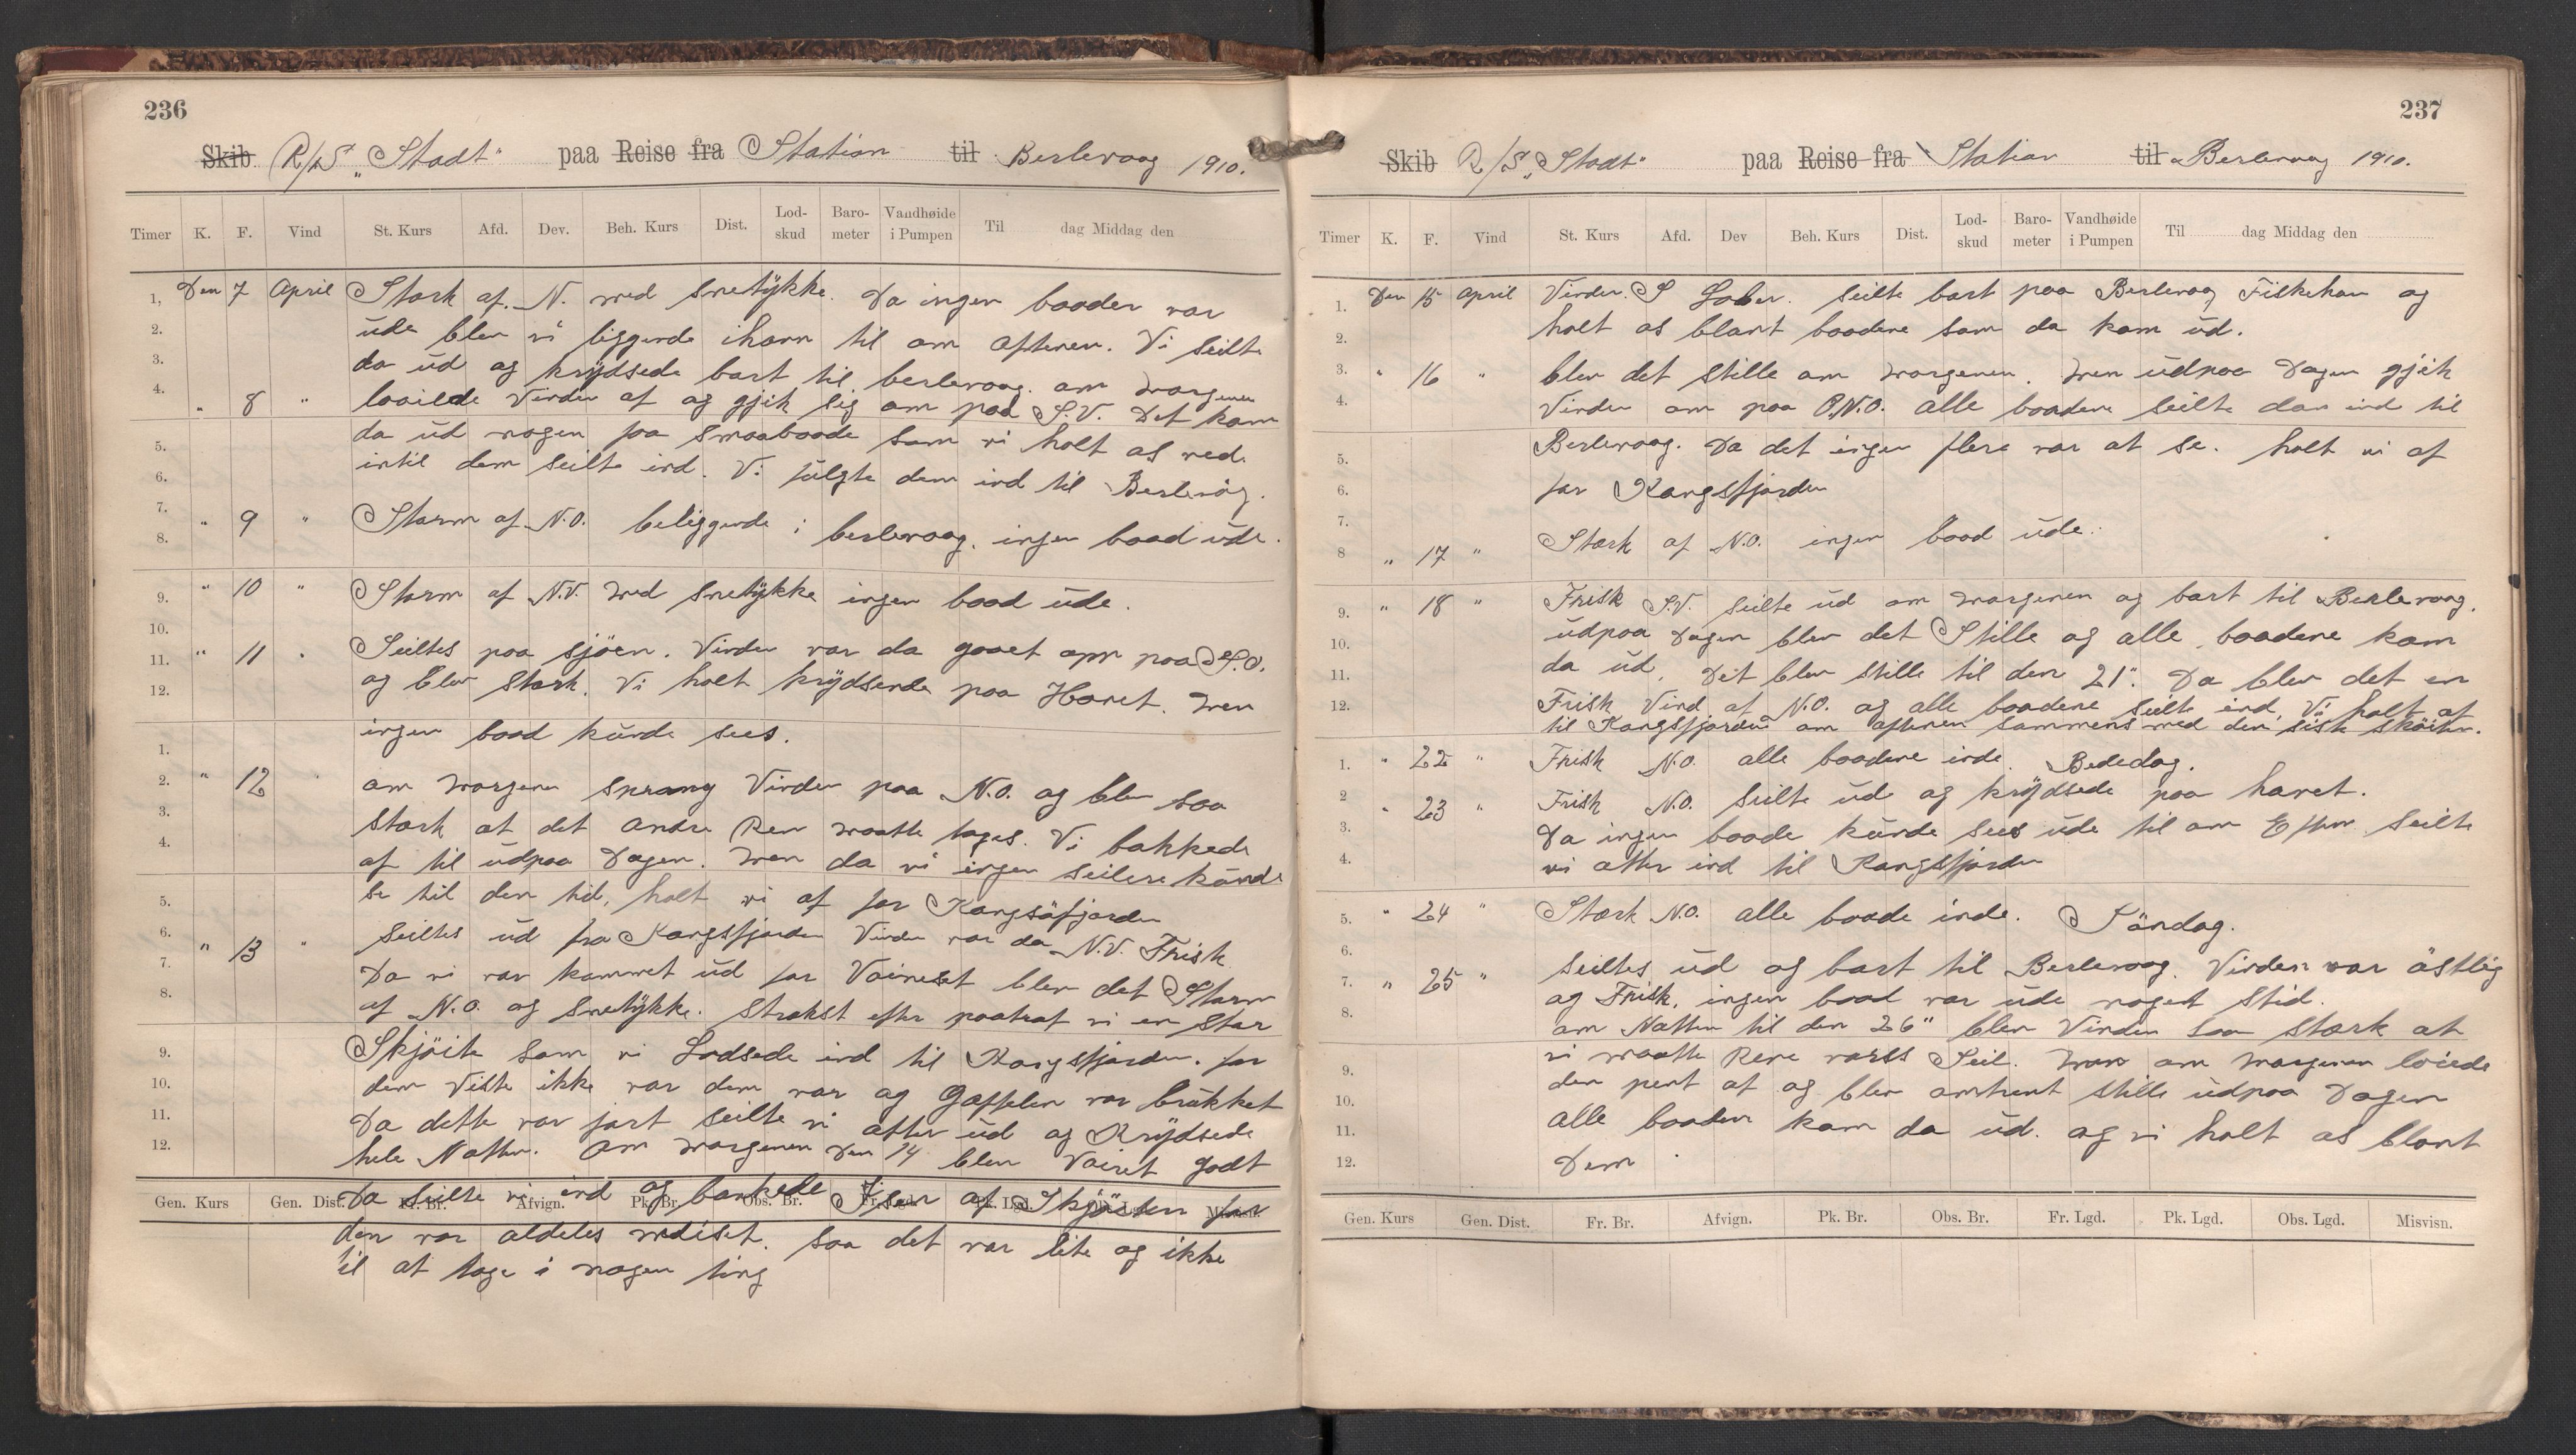 236
Skib R/S „Stadt" paa Reise fra Station til Berlevaag 1910.
Timer K. F. Vind St. Kurs Afd. Dev. Beh. Kurs Dist. Lod-skud Baro-meter Vandhøide i Pumpen Til dag Middag den
1, Den 7 April Stærk af N. med snetykke. Da ingen baader var
2. ude blev vi liggende ihavn til om Aftenen. Vi seilte
3. da ud og krydsede bort til berlevaag. om morgenen
4. " 8 " løiede Vinden af og gjik sig om paa S.V. Det kom
5. da ud nogen faa smaabaade som vi holt os ved
6. intil dem seilte ind. Vi fulgte dem ind til Berlevåg.
7. " 9 " Storm af N.O. beliggende i berlevaag. ingen baad ude.
8.
9. " 10 " Storm af N.V. med snetykke ingen baad ude.
10.
11. " 11 " Seiltes paa sjöen. Vinden var da gaaet opp paa S.O.
12. og blev stærk. Vi holt krydsende paa Havet. men
ingen baad kunde sees.
1.
2. " 12 " om morgenen sprang Vinden paa N.O. og blev saa
3. stærk at det andre Rev maatte tages. Vi bakkede
4. af til udpaa Dagen. men da vi ingen seilere kunde
5. se til den tid, holt vi af for Kongsöfjorden
6. " 13 " seiltes ud fra Kongsfjorden Vinden var da N.V. Frisk
7. Da vi var kommet ud for Væineset blev det Storm
8. af N.O. og snetykke. strakst efter paatraf vi en stor
9. Skjöite som vi Lodsede ind til Kongsfjorden. for
10. dem viste ikke var dem var og Gaffelen var brukket
11. Da dette var fort seilte vi atter ud og Krydsede
12. hele Natten. Om morgenen Den 14 blev Vairet godt
Gen. Kurs Gen. Dist. Fr. Br. Afvign. Pk. Br. Obs. Br. Fr. Lgd. Pk. Lgd. Obs. Lgd. Misvisn.
Da seilte vi ind og bankede Isen af Skjöiten for
den var aldeles nediset. saa det var lite og ikke
til at tage i nogen ting
237
Skib R/S „Stadt" paa Reise fra Station til Berlevaag 1910.
Timer K. F. Vind St. Kurs Afd. Dev Beh. Kurs Dist. Lod-skud Baro-meter Vandhøide i Pumpen Til dag Middag den
1. Den 15 April Vinden. S Laber. seilte bort paa Berlevaag Fiskehav og
2. holt os blant baadene som da kom ud.
3. " 16 " blev det stille om morgenen. men udpaa Dagen gjik
4. Vinden om paa O.N.O. alle baadene seilte da ind til
5. Berlevaag. Da det ingen flere var at se. holt vi af
6. for Kongsfjorden
7.
8 " 17 " Stærk af N.O. ingen baad ude.
9. " 18 " Frisk S.V. seilte ud om morgenen og bort til Berlevaag.
10. udpaa Dagen blev det Stille og alle baadene kom
11. da ud. Det blev stille til den 21". Da blev det en
12. Frisk Vind af N.O. og alle baadene seilte ind. Vi holt af
til Kongsfjorden om aftenen sammens med den sisk sköiten.
1. " 22 " Frisk N.O. alle baadene inde. Bededag.
2 " 23 " Frisk N.O. seilte ud og krydsede paa havet.
3. Da ingen baade kunde sees ude til om Efterm. seilte
4. vi atter ind til Kongsfjorden
5. " 24 " Stærk N.O. alle baade inde. Söndag.
6.
7. " 25 " seiltes ud og bort til Berlevaag. Vinden var östlig
8. og Frisk, ingen baad var ude noget stid.
om Natten til den 26" blev Vinden saa stærk at
9. vi maatte Reve vores Seil. men om morgenen löiede
10. den pent af og blev omtrent stille udpaa Dagen
11. alle baadene kom da ud. og vi holt os blant
12. Dem
Gen. Kurs Gen. Dist. Fr. Br. Afvign. Pk. Br. Obs. Br. Fr. Lgd. Pk. Lgd. Obs. Lgd. Misvisn.